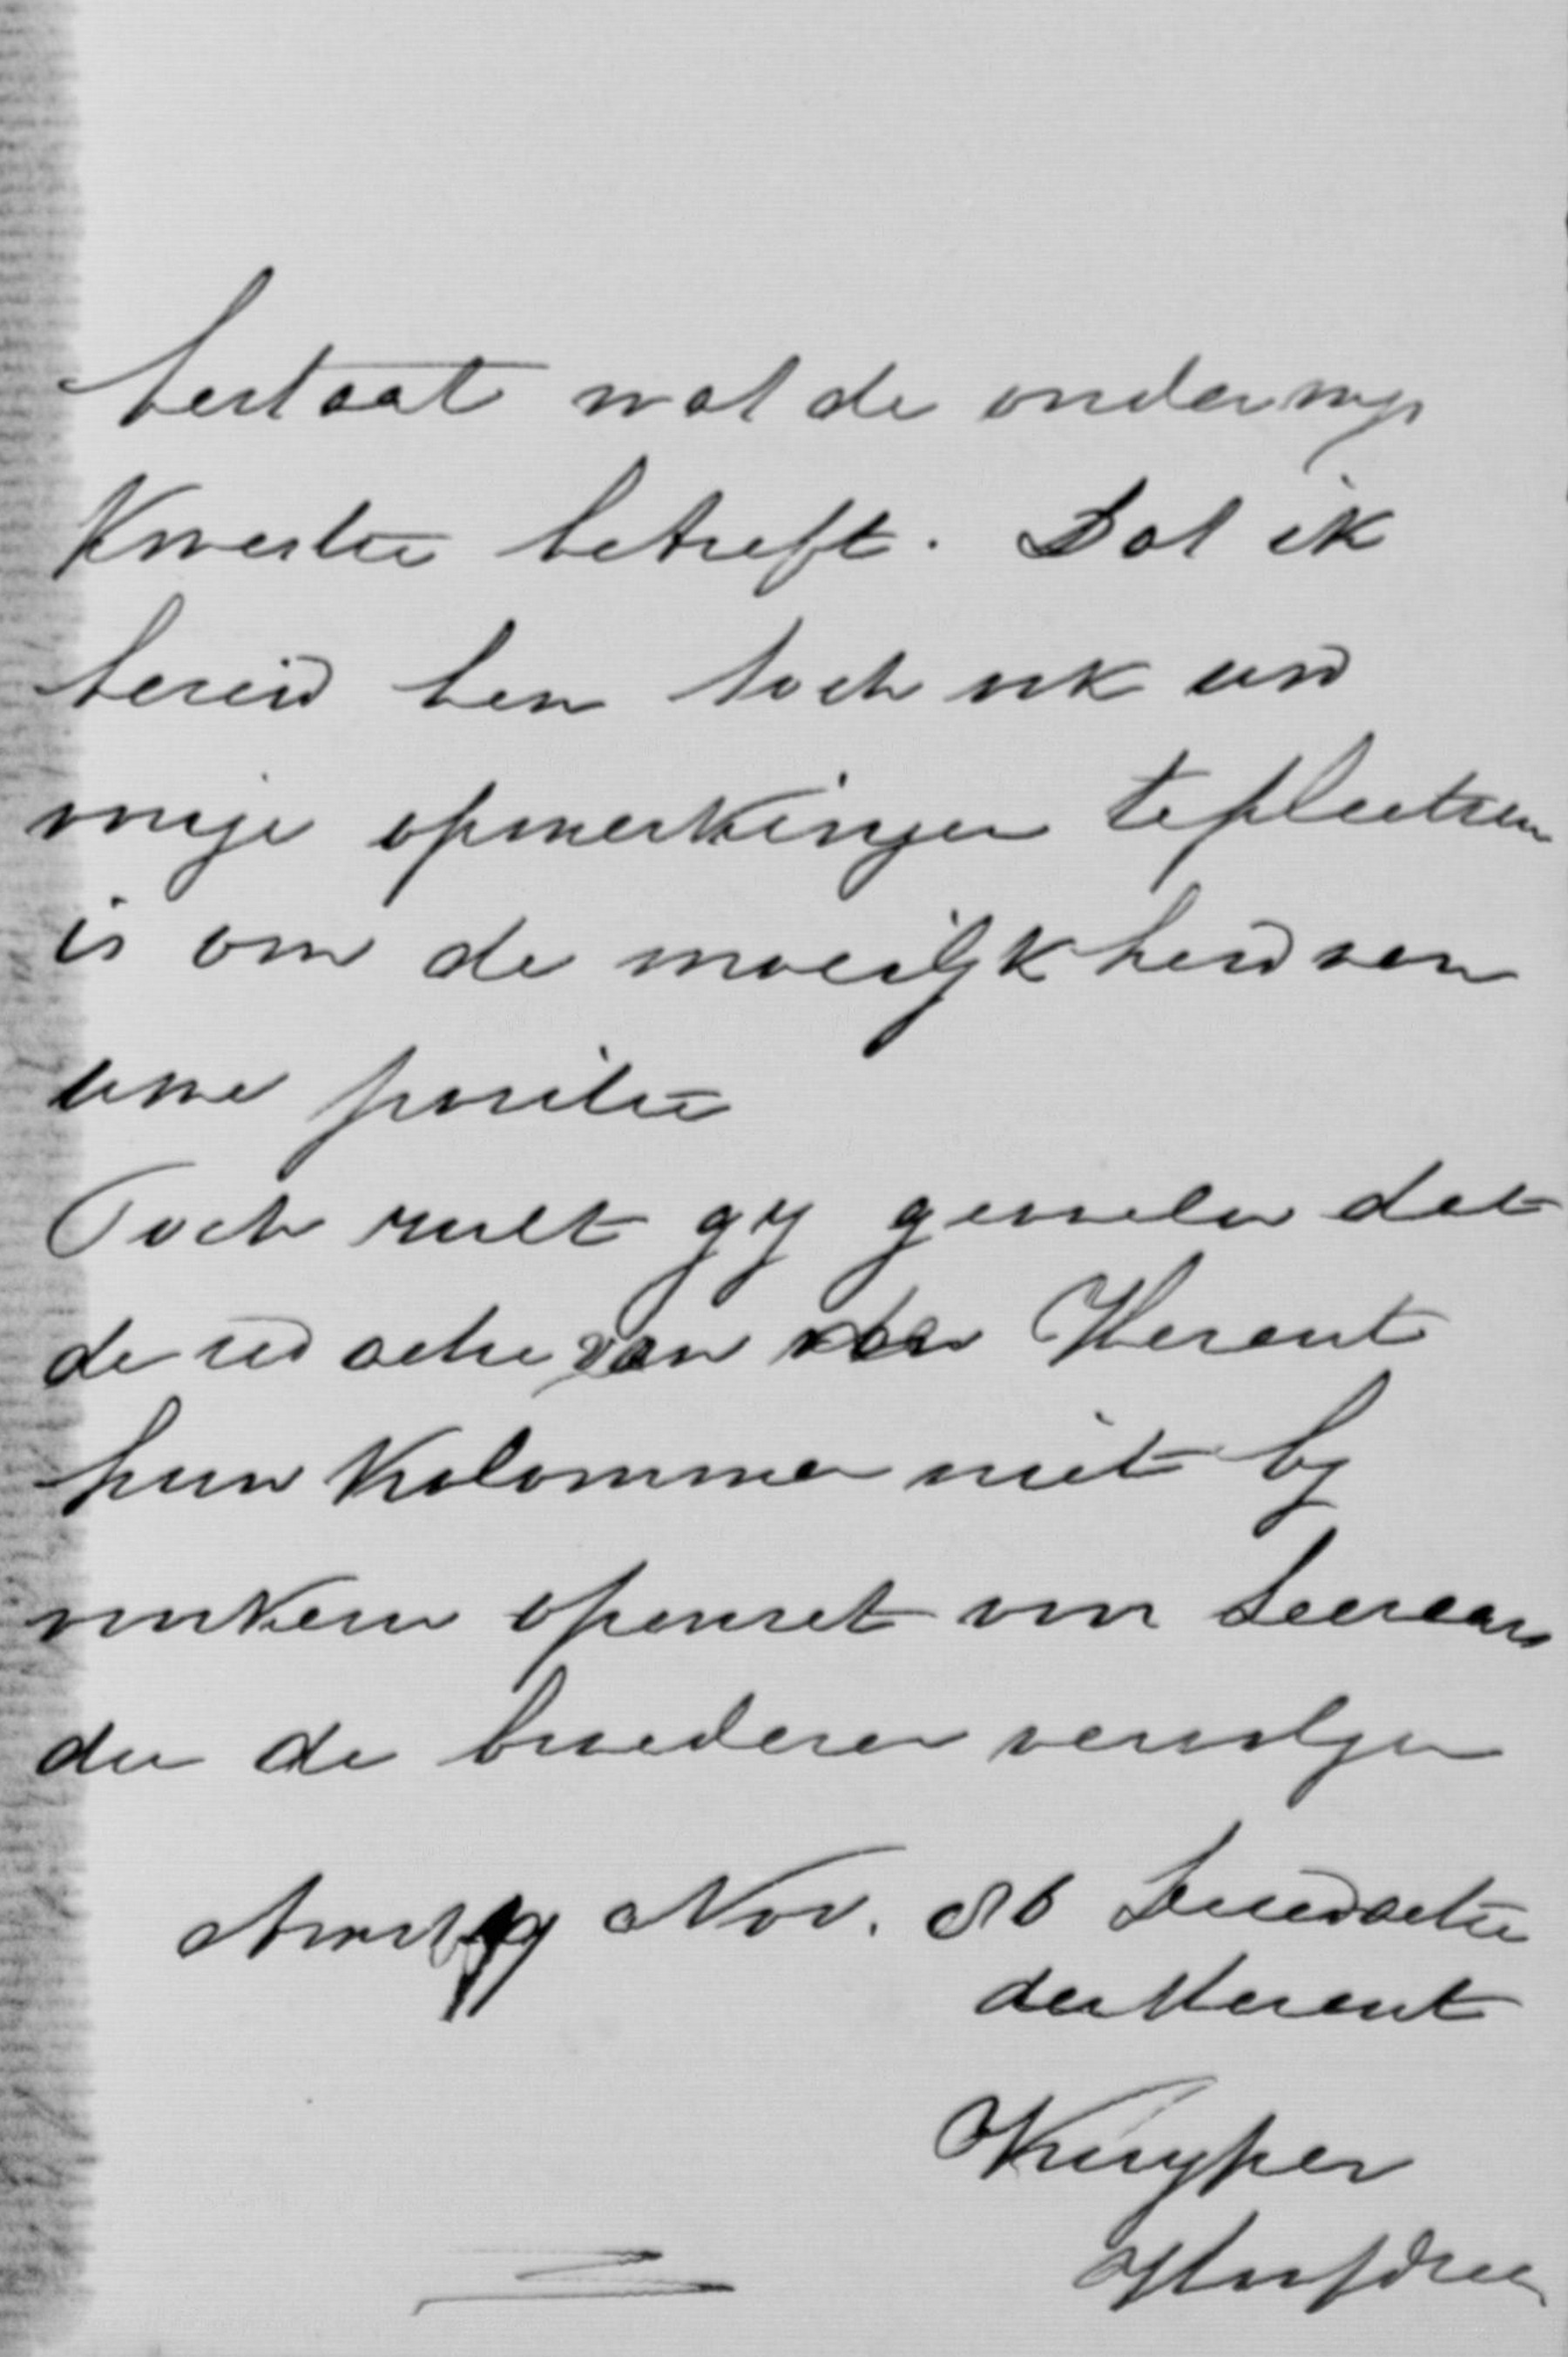 bestaat wat de onderwijs
Kwestie betreft. Dat ik
bereid ben toch ook uw
vrije opmerkingen te plaatsen
is om de moeilijkheid van
uwe positie
Toch zult gij gevoelen dat
de redactie van den Heraut
hun Kolommen niet bij
voorkeur openzet voor Leeraars
die de broederen vervolgen
Amst. Nov. 86 De redactie
der Heraut
Kuyper
Hoofdred